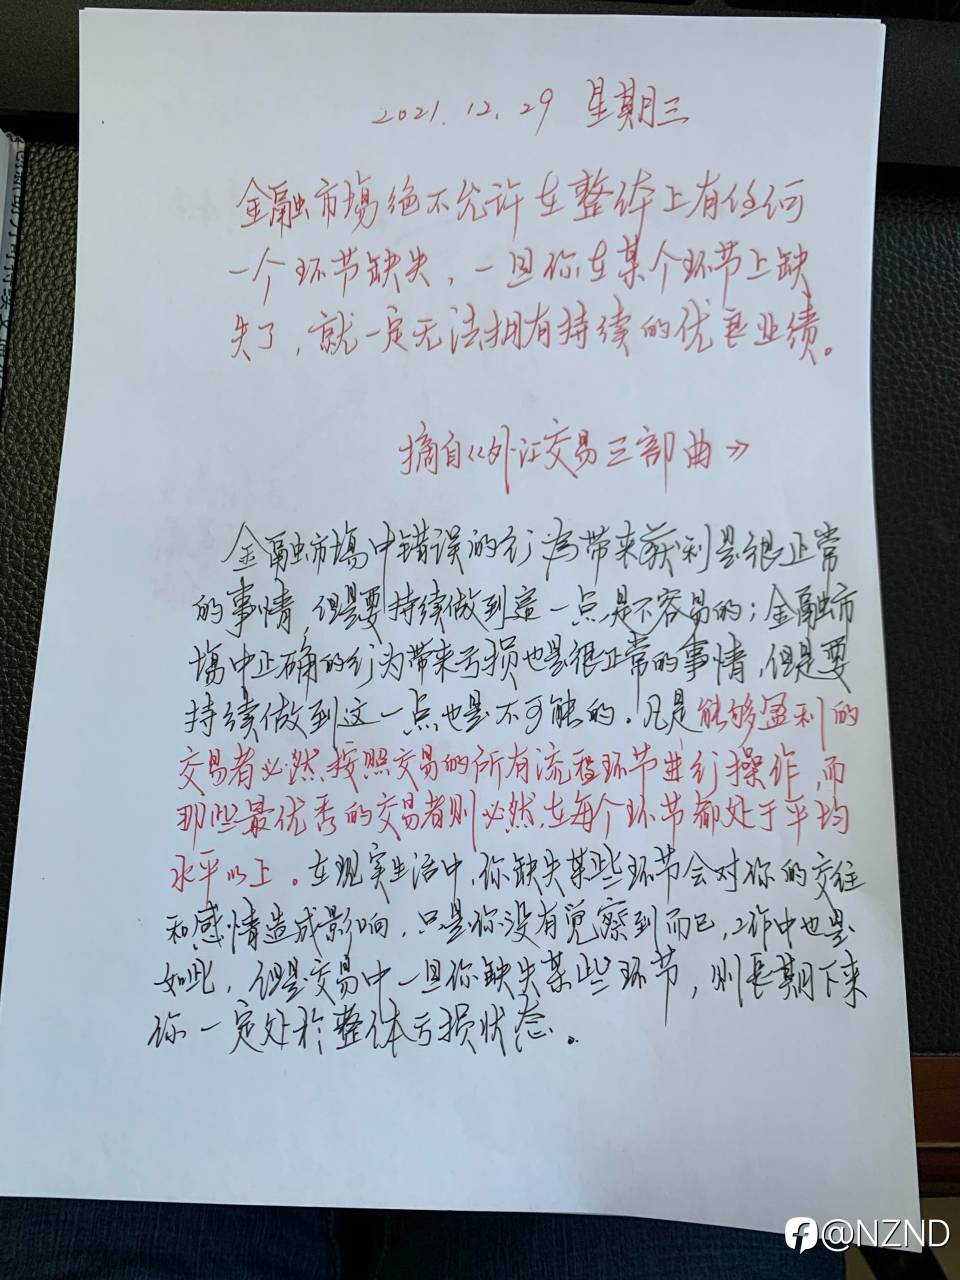 2021.12.29 星期三
金融市场绝不允许在整体上有任何
一个环节缺失，一旦你在某个环节上缺
失了，就一定无法拥有持续的优良业绩。
摘自《外汇交易三部曲》
金融市场中错误的行为带来获利是很正常
的事情，但是要持续做到这一点是不容易的；金融市
场中正确的行为带来亏损也是很正常的事情，但是要
持续做到这一点也是不可能的。凡是能够盈利的
交易者必然按照交易的所有流程环节进行操作，而
那些最优秀的交易者则必然在每个环节都处于平均
水平以上。在现实生活中，你缺失某些环节会对你的交往
和感情造成影响，只是你没有觉察到而已，工作中也是
如此，但是交易中一旦你缺失某些环节，则长期下来
你一定处於整体亏损状态。
@NZND